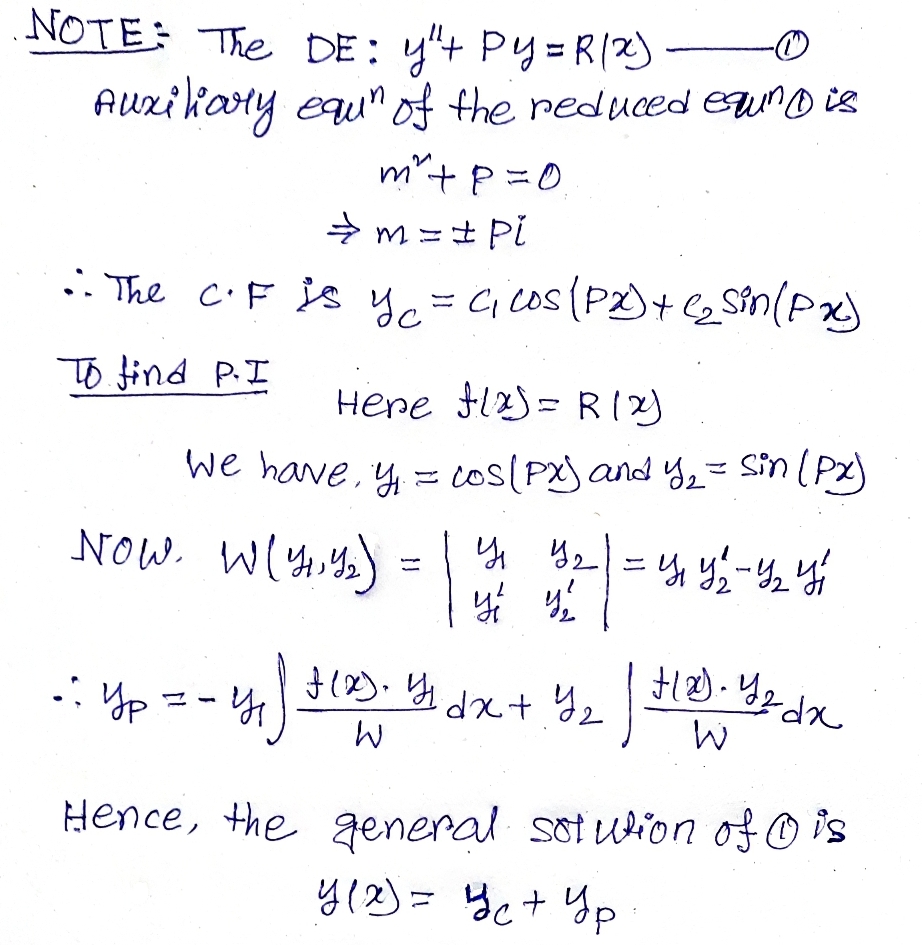 NOTE: The DE: y"+ Py = R(x) —— ①
Auxiliary equⁿ of the reduced equn ① is
m² + P = 0
⇒ m = ± Pi
∴ The C.F is y_c = c₁ cos(Px) + c₂ sin(Px)
To find P.I
Here f(x) = R(x)
We have, y₁ = cos(Px) and y₂ = sin(Px)
NOW. W(y₁, y₂) = | y₁ y₂ | = y₁ y₂' - y₂ y₁'
| y₁' y₂' |
∴ y_p = - y₁ ∫ f(x). y₁ / W dx + y₂ ∫ f(x). y₂ / W dx
Hence, the general solution of ① is
y(x) = y_c + y_p